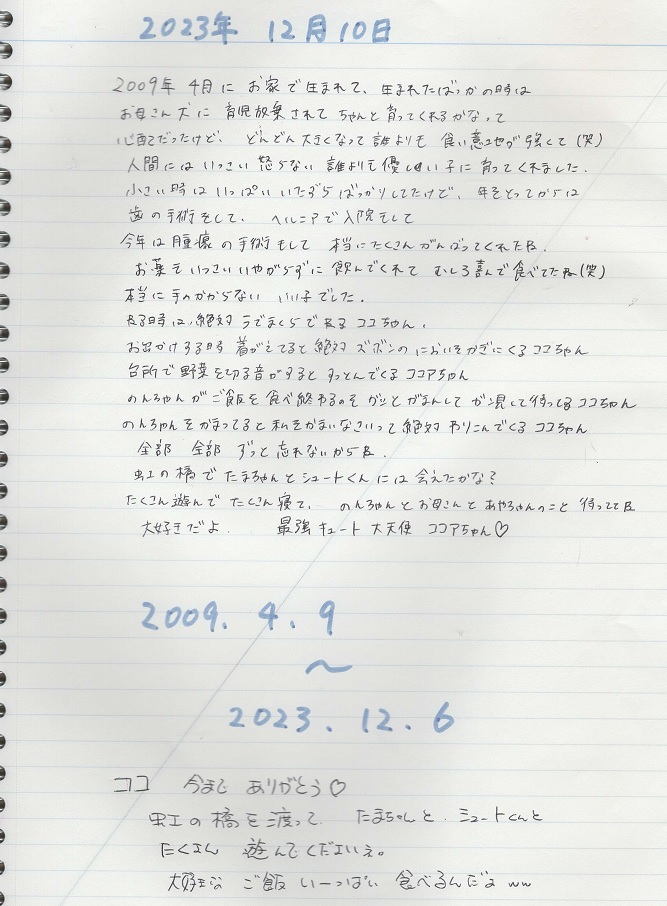 2023年 12月10日
2009年 4月に お家で生まれて、生まれたばっかの時は
お母さん犬に 育児放棄されて ちゃんと育ってくれるかなって
心配だったけど、どんどん大きくなって誰よりも 食い意地が強くて(笑)
人間にはいっさい怒らない 誰よりも優しい子に育ってくれました.
小さい時はいっぱいいたずらばっかりしてたけど、年をとってからは
歯の手術をして、ヘルニアで入院をして
今年は腫瘍の手術もして 本当にたくさんがんばってくれたね.
お薬もいっさいいやがらずに 飲んでくれて むしろ喜んで食べてたね(笑)
本当に手のかからない いい子でした.
ねる時は、絶対うでまくらでねる ココちゃん.
お出かけする時 着がえてると絶対 ズボンの においをかぎにくる ココちゃん
台所で野菜を切る音がすると すっとんでくる ココアちゃん
のんちゃんがご飯を食べ終わるのを ガッとがまんして ガン見して待ってる ココちゃん
のんちゃんをかまってると 私をかまいなさいって絶対 わりこんでくる ココちゃん
全部 全部 ずっと忘れないからね.
虹の橋で たまちゃんとシュートくんには会えたかな?
たくさん遊んで たくさん寝て、 のんちゃんとお母さんとあやちゃんのこと 待っててね
大好きだよ. 最強キュート 大天使 ココアちゃん♡
2009. 4. 9
〜
2023. 12. 6
ココ 今まで ありがとう♡
虹の橋を渡って たまちゃんと、シュートくんと
たくさん 遊んでくださいね。
大好きな ご飯 いーっぱい 食べるんだよ ww